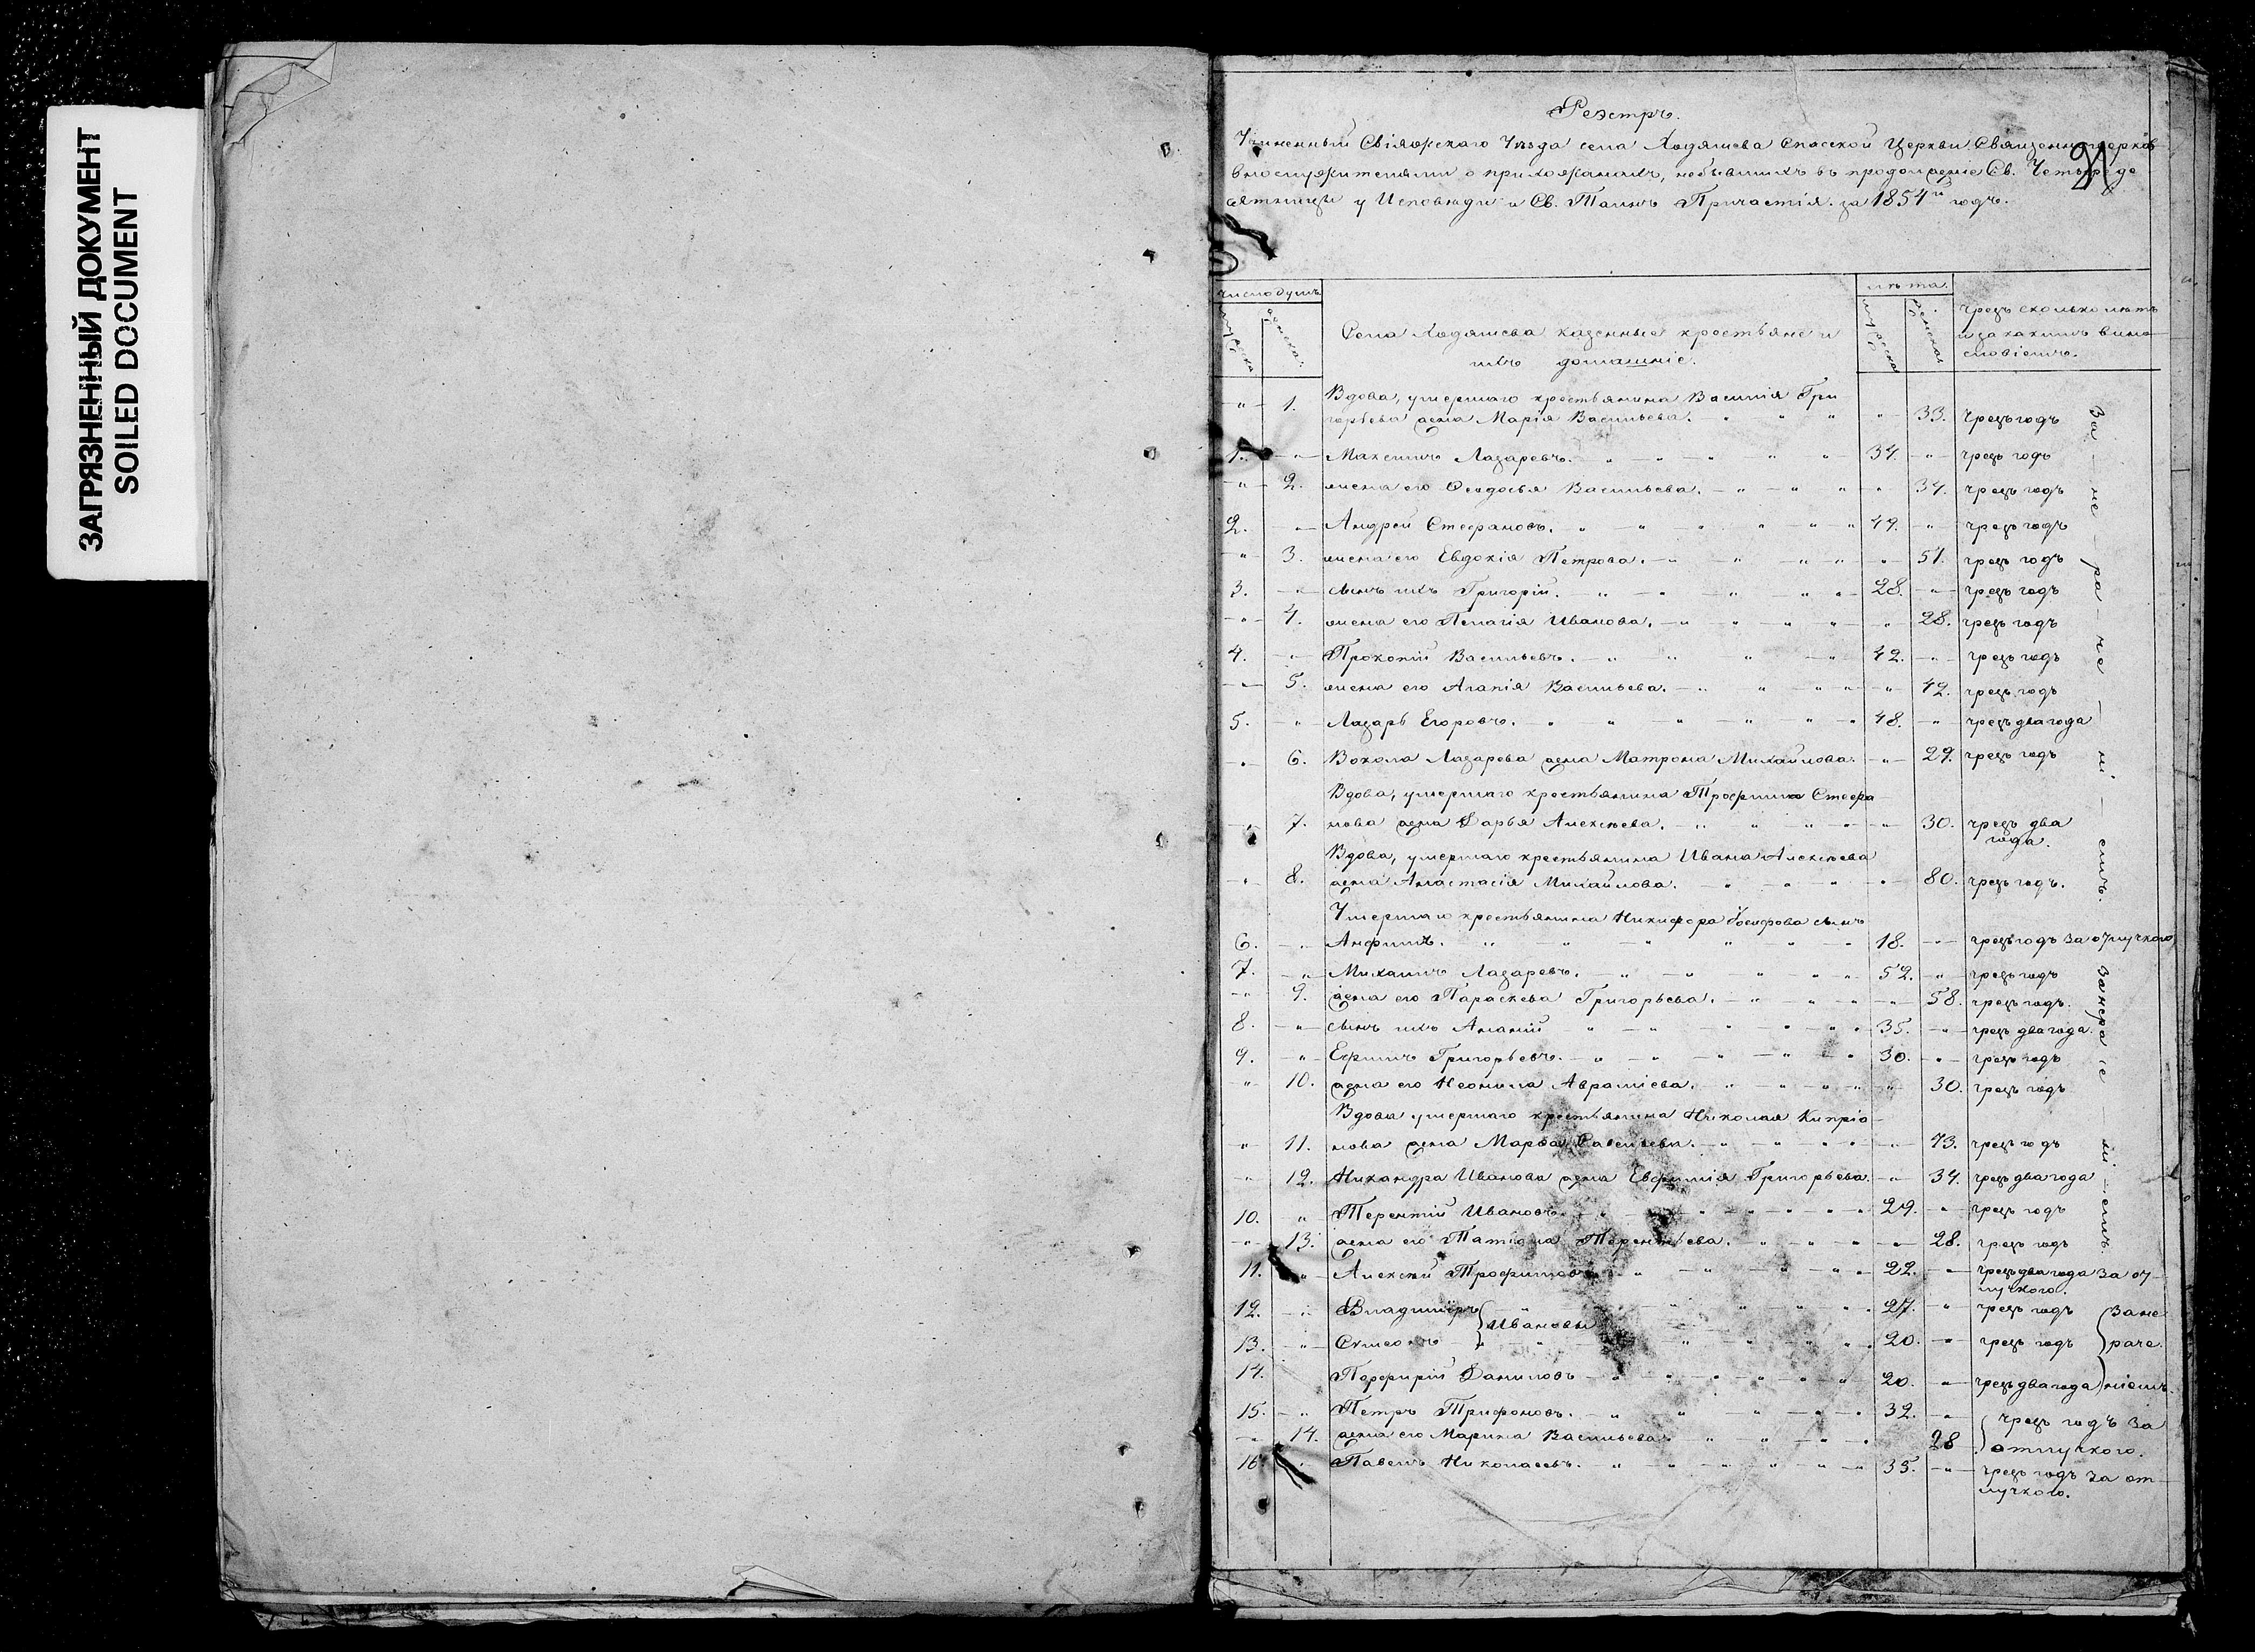 ЗАГРЯЗНЕННЫЙ ДОКУМЕНТ
SOILED DOCUMENT
Реэстръ.
Учиненный Свіяжскаго Уѣзда села Ходяшева Спасской Церкви Священноцерков
внослужителями о прихожанахъ, небывшихъ въ продолженіе Св. Четыреде
сятницы у Исповѣди и Св. Таинъ Причастія. за 1854й годъ.
Число душъ
мужеска
женска.
Села Ходяшева казенные крестьяне и
ихъ домашніе.
лѣта.
мужеска
женска
Чрезъ сколько лѣтъ
и за какимъ вино
словіемъ.
Вдова, умершаго крестьянина Василія Гри
" 1. горьева жена Марія Васильева. " 33. Чрезъ годъ
1. " Максимъ Лазаревъ. 34. " чрезъ годъ
" 2. жена его Феодосья Васильева. " 34. чрезъ годъ
2. " Андрей Стефановъ. 49. " чрезъ годъ
" 3. жена его Евдокія Петрова. " 51. чрезъ годъ
3. " сынъ ихъ Григорій. 28. " чрезъ годъ
" 4. жена его Пелагія Иванова. " 28. чрезъ годъ
4. " Прокопій Васильевъ. 42. " чрезъ годъ
" 5. жена его Агапія Васильева. " 42. чрезъ годъ
5. " Лазарь Егоровъ. 48. " чрезъ два года
" 6. Вокола Лазарева жена Матрона Михайлова. " 29. чрезъ годъ
Вдова, умершаго крестьянина Трофима Стефа
" 7. нова жена Дарья Алексѣева. " 30. чрезъ два
года.
Вдова, умершаго крестьянина Ивана Алексѣева
" 8. жена Анастасія Михайлова. " 80. чрезъ годъ.
Умершаго крестьянина Никифора Іосифова сынъ
6. " Анфимъ. 18. " чрезъ годъ За отлучкою
7. " Михаилъ Лазаревъ. 52. " чрезъ годъ
" 9. жена его Параскева Григорьева. " 58. чрезъ годъ.
8. " сынъ ихъ Ананій 35. " чрезъ два года.
9. " Ефимъ Григорьевъ. 30. " чрезъ годъ
" 10. жена его Неонила Аврамієва. " 30. чрезъ годъ
Вдова умершаго крестьянина Николая Кипріо
" 11. нова жена Марѳа Савельева. " 73. чрезъ годъ
" 12. Никандра Иванова жена Евфимія Григорьева. " 34. чрезъ два года
10. " Терентій Ивановъ. 29. " чрезъ годъ
" 13. жена его Татіана Терентьева. " 28. чрезъ годъ
11. " Алексѣй Трофимовъ 22. " чрезъ два года За от
лучкою.
12. " Владиміръ 27. " чрезъ годъ За не
Ивановы
13. " Симеонъ 20. " чрезъ годъ раче
14. Порфирій Даниловъ 20. " чрезъ два года ніемъ.
15. " Петръ Трифоновъ. 32. " чрезъ годъ За
" 14. жена его Марина Васильева. 28 отлучкою.
16. " Павелъ Николаевъ. 35. " чрезъ годъ За от
лучкою.
За не ра че ні емъ.
За нера че ні емъ.